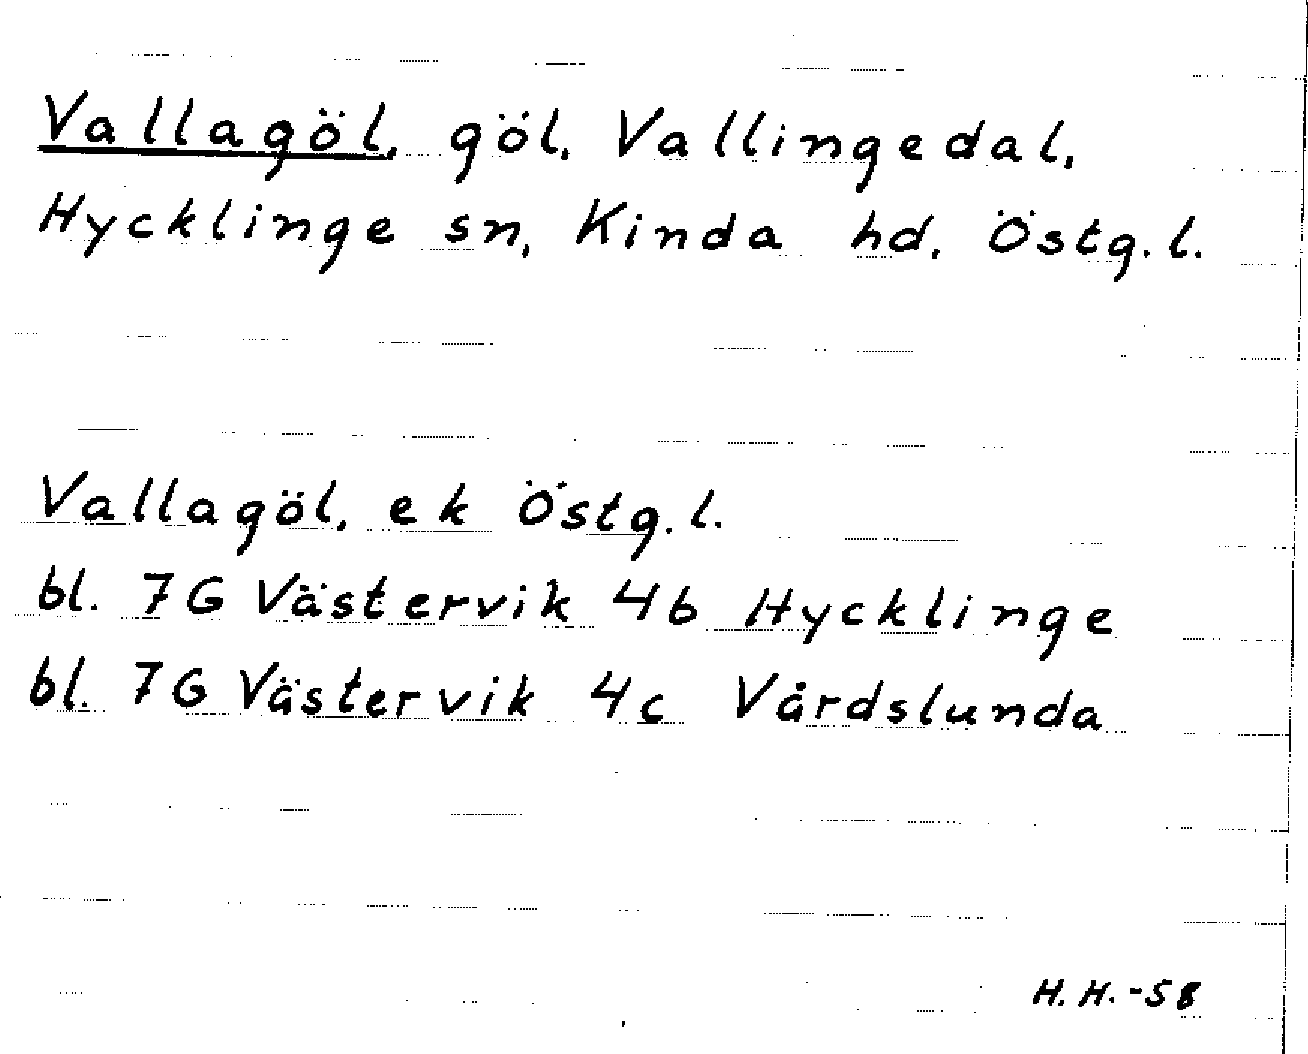 Vallagöl, göl, Vallingedal,
Hycklinge sn, Kinda hd, Östg. l.
Vallagöl, ek Östg. l.
bl. 7G Västervik 4b Hycklinge
bl. 7G Västervik 4c Vårdslunda
H. H. -58